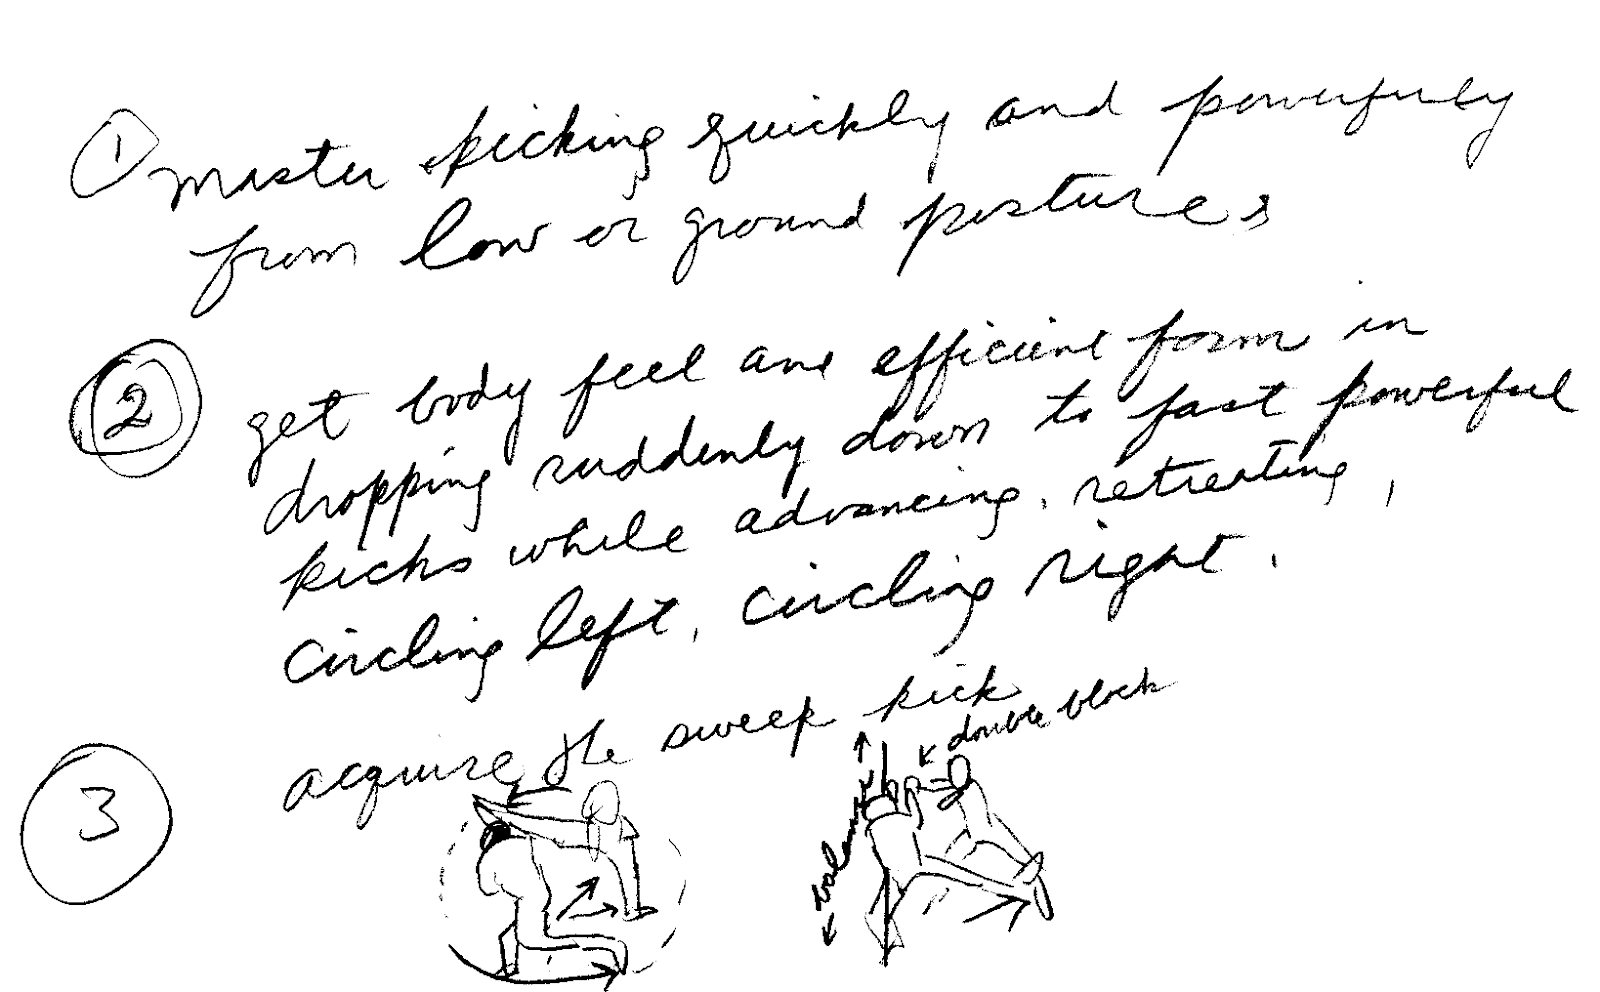 ① master kicking quickly and powerfully
from low or ground postures
② get body feel and efficient form in
dropping suddenly down to fast powerful
kicks while advancing, retreating,
circling left, circling right.
③ acquire the sweep kick
double block
balance